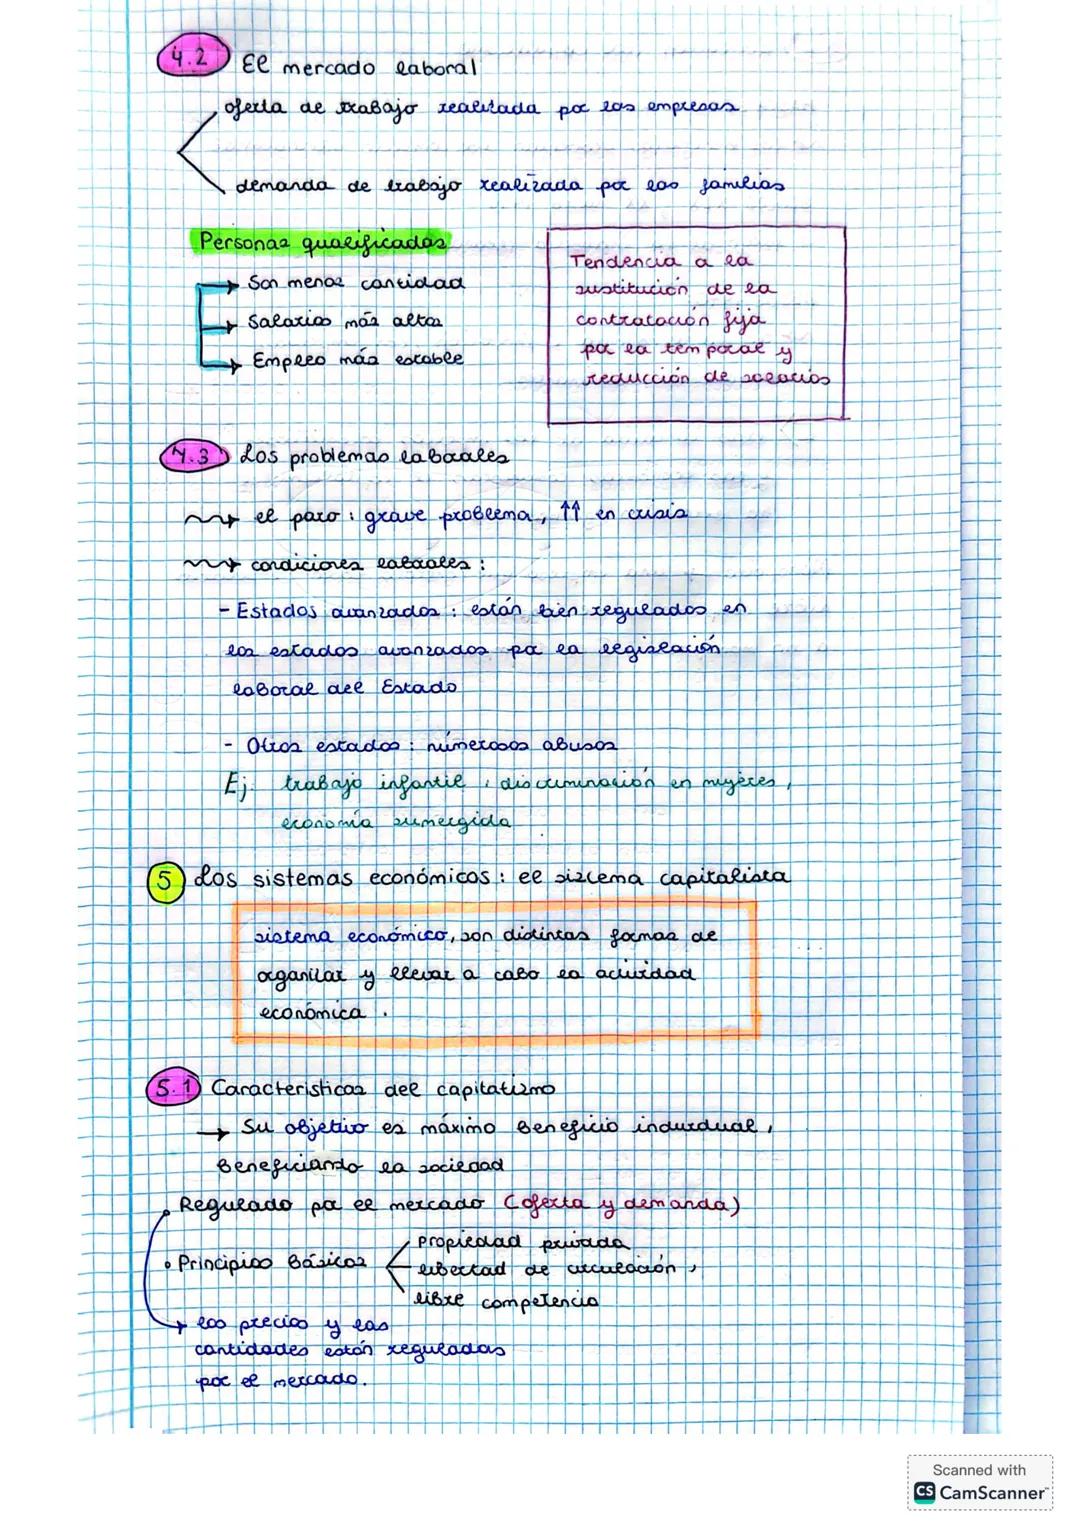 4.2 El mercado laboral
oferta de trabajo realizada por las empresas
demanda de trabajo realizada por las familias
Personas qualificadas
Son menos cantidad
Salarios más altos
Empleo más estable
Tendencia a la
sustitución de la
contratación fija
por la temporal y
reducción de salarios
4.3 Los problemas laborales
el paro: grave problema, ↑↑ en crisis
condiciones laborales:
- Estados avanzados: están bien regulados en
los estados avanzados por la legislación
laboral del Estado
- Otros estados: númerosos abusos
Ej. trabajo infantil, discriminación en mujeres,
economía sumergida
5 Los sistemas económicos: el sistema capitalista
sistema económico, son distintas formas de
organizar y llevar a cabo la actividad
económica.
5.1 Caracteristicas del capitalismo
→ Su objetivo es máximo beneficio individual,
beneficiando la sociedad
Regulado por el mercado (oferta y demanda)
• Principios básicos
propiedad privada
libertad de circulación,
libre competencia
los precios y las
cantidades están reguladas
por el mercado.
Scanned with
CS CamScanner